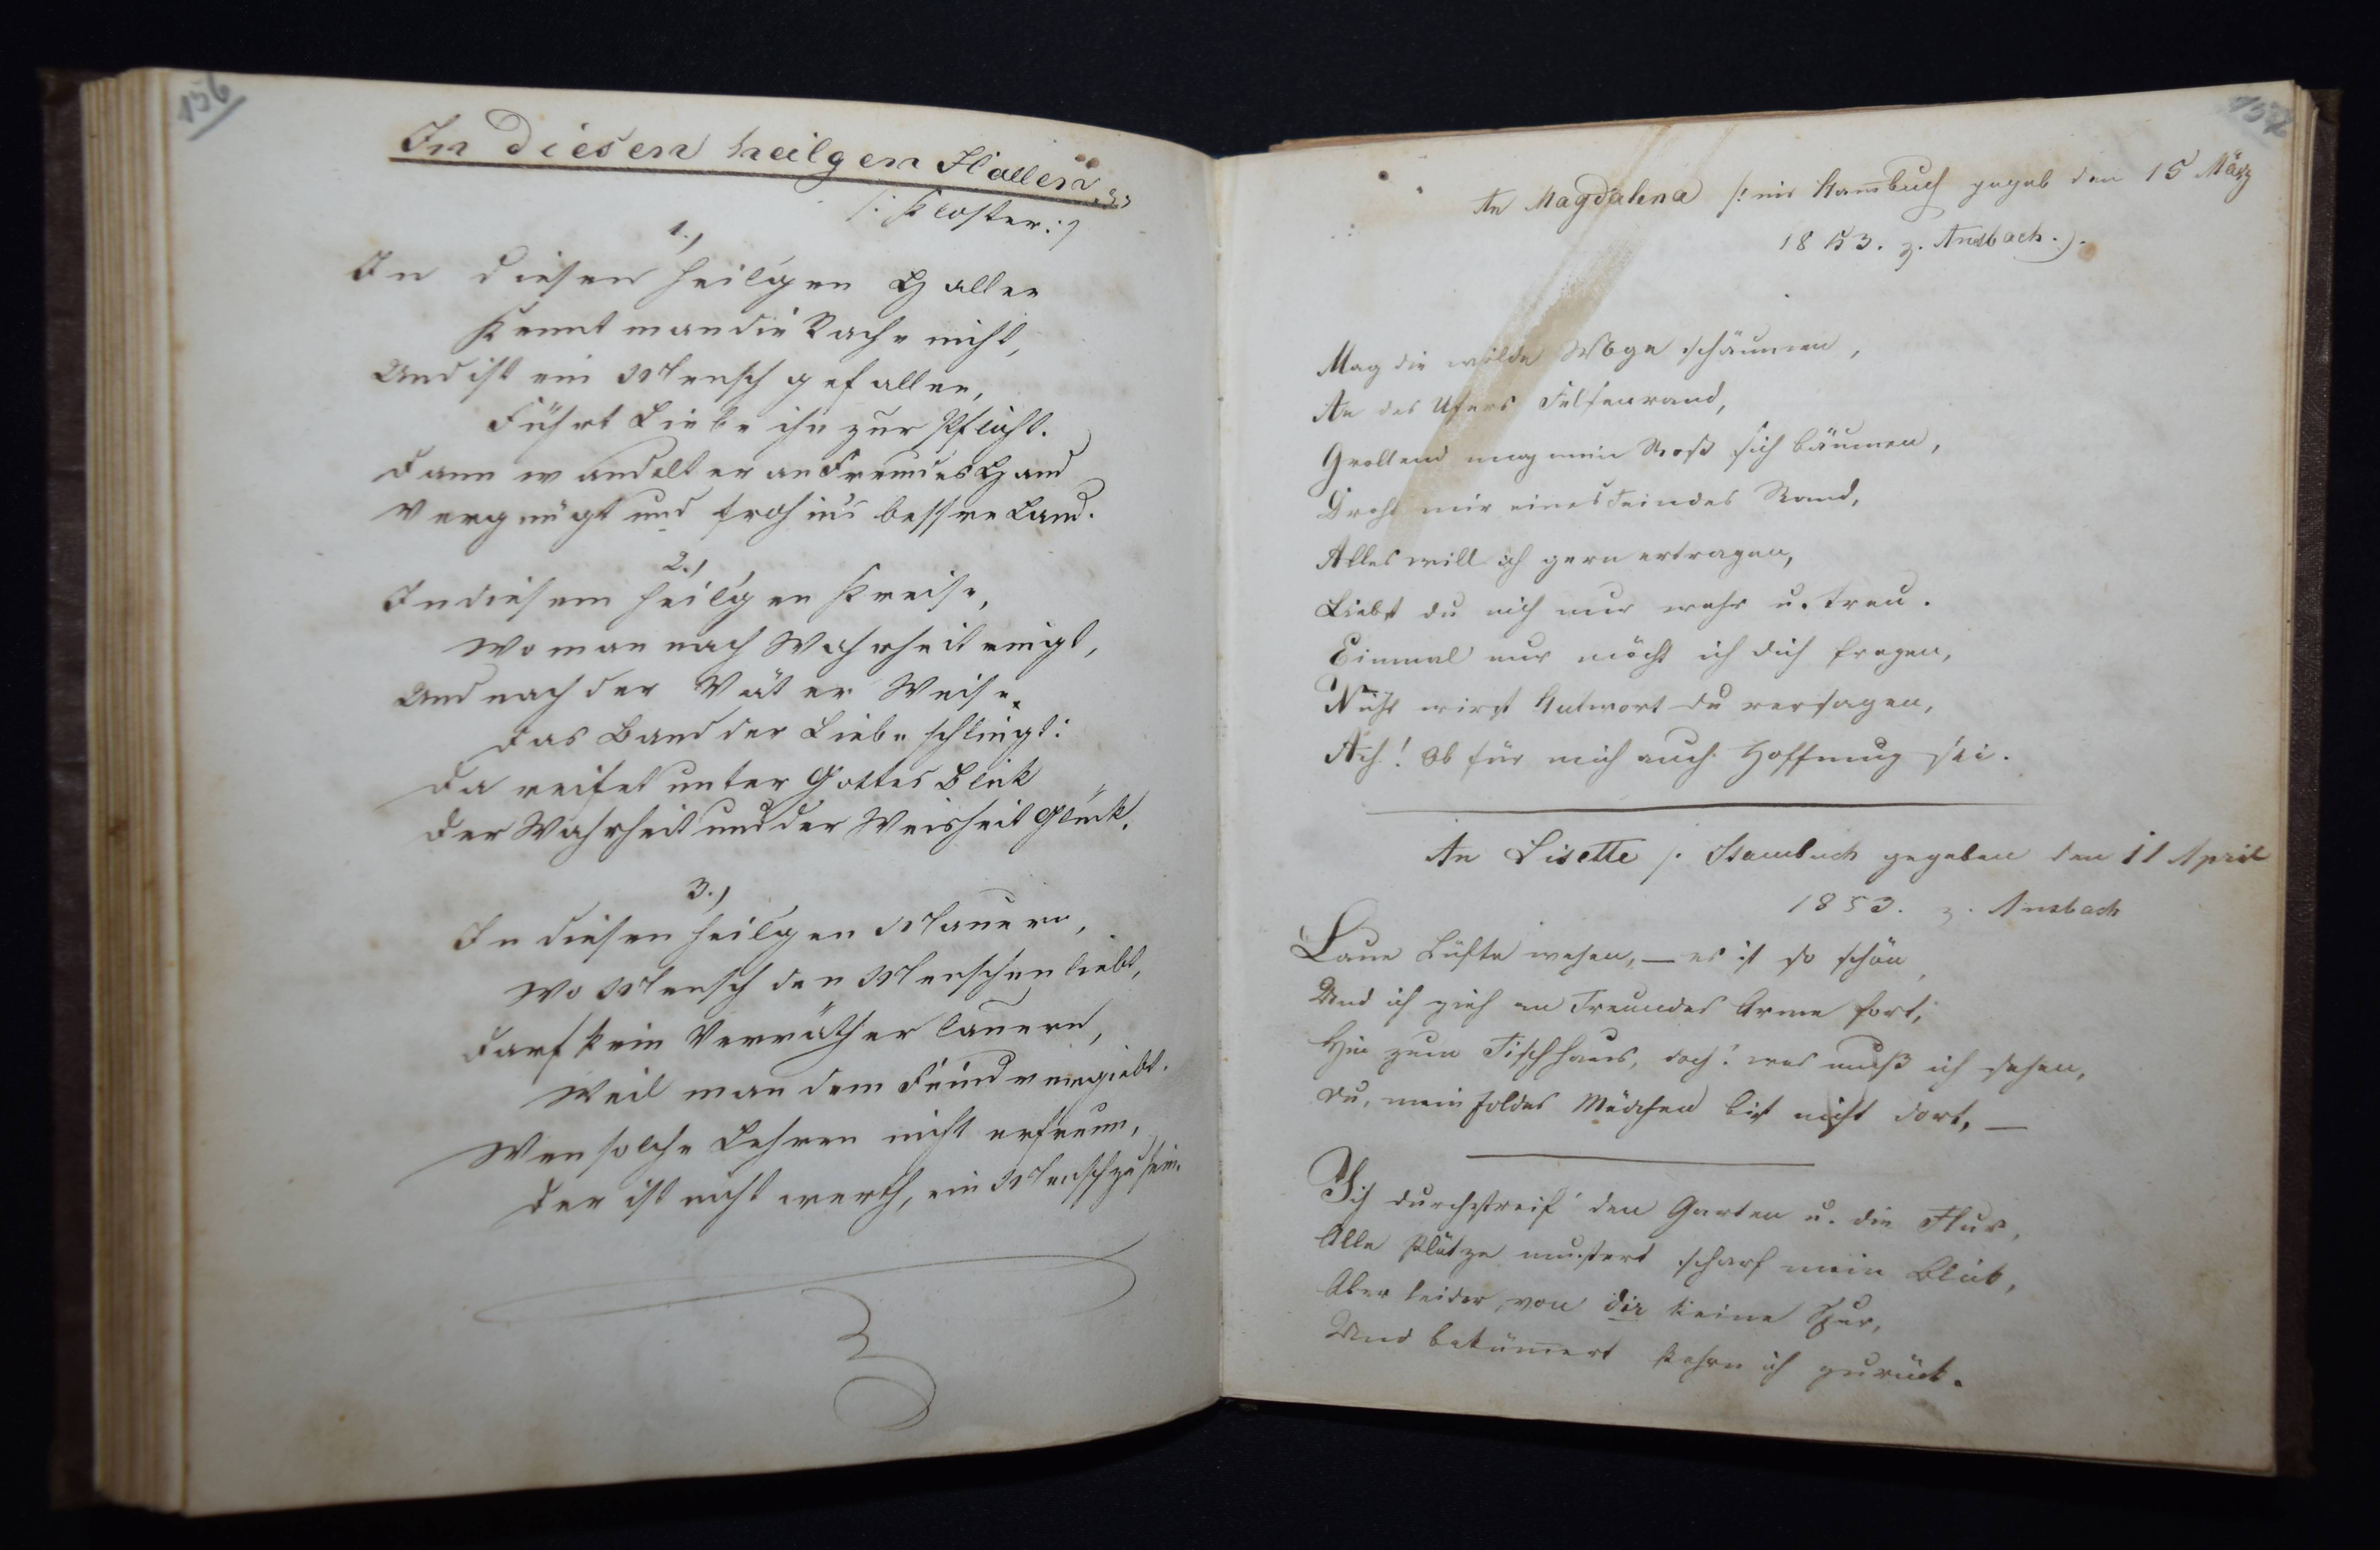 156
In diesen heilgen Hallen
/: Kloster :/
1.,
In diesen heil'gen Hallen
Kennt man die Rache nicht,
Und ist ein Mensch gefallen,
Führt Liebe ihn zur Pflicht.
Dann wandelt er an Freundes Hand
Vergnügt und froh ins bessre Land.
2.,
In diesem heil'gen Kreise,
Wo man nach Wahrheit ringt,
Und nach der Väter Weise
Das Band der Liebe schlingt:
Da reifet unter Gottes Blick
Der Wahrheit und der Weisheit Glück.
3.,
In diesen heil'gen Mauern,
Wo Mensch den Menschen liebt,
Darf kein Verräther lauern,
Weil man dem Feind vergiebt.
Wen solche Lehren nicht erfreun,
Der ist nicht werth, ein Mensch zu sein.
157
An Magdalena /: mir Stambuch gegeb den 15 März
1853. z. Ansbach.).
Mag die wilde Woge schäumen,
An des Ufers Felsenrand,
Grollend mag mein Roß sich bäumen,
Droht mir eines Feindes Hand,
Alles will ich gern ertragen,
Liebst du mich nur wahr u. treu.
Einmal nur möcht ich dich fragen,
Nicht wirst Antwort du versagen,
Ach! Ob für mich auch Hoffnung sei.
An Lisette /: Stambuch gegeben den 11 April
1853. z. Ansbach
Laue Lüfte wehen, — es ist so schön,
Und ich zieh am Freundes Arme fort,
Hin zum Tischhaus, doch! was muß ich sehen,
Du, mein holdes Mädchen bist nicht dort, —
Ich durchstreif' den Garten u. die Flur,
Alle Plätze mustert scharf mein Blick,
Aber leider, von dir keine Spur,
Und bekümert kehre ich zurück.